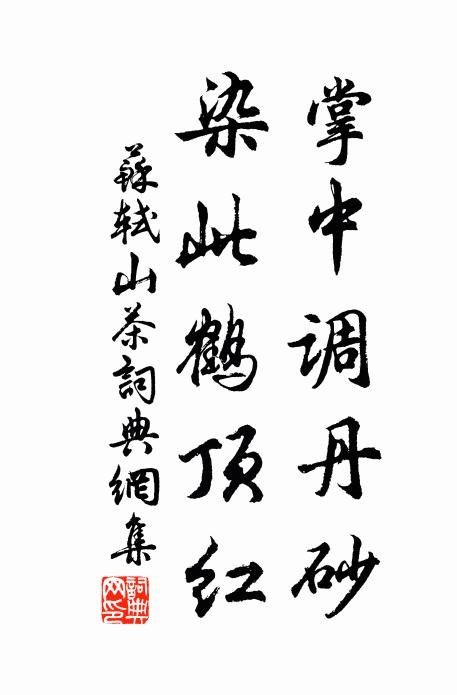 掌中调丹砂
染此鹤顶红
蘇軾山茶詞典網集
詞典网印